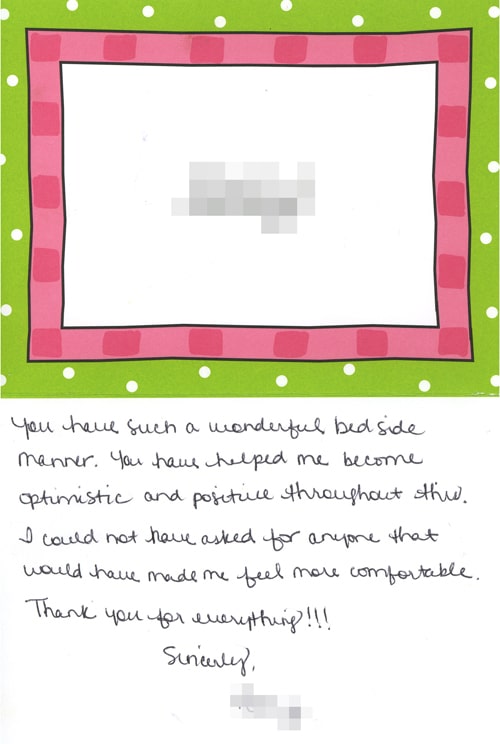 You have such a wonderful bedside
manner. You have helped me become
optimistic and positive throughout this.
I could not have asked for anyone that
would have made me feel more comfortable.
Thank you for everything!!!
Sincerely,